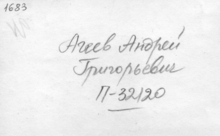 1683
Агеев Андрей
Григорьевич
П-32120